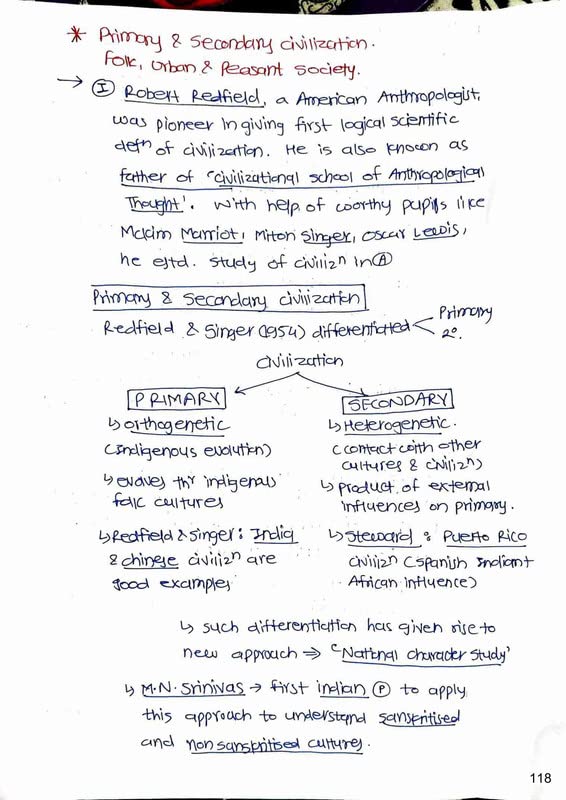 * Primary & Secondary civilization.
Folk, Urban & Peasant Society.
→ (I) Robert Redfield, a American Anthropologist,
was pioneer in giving first logical scientific
defn of civilization. He is also known as
father of 'civilizational school of Anthropological
Thought'. With help of worthy pupils like
Mckim Marriot, Miton Singer, Oscar Lewis,
he estd. study of civilizn in (A)
Primary & Secondary civilization
Redfield & Singer (1954) differentiated < Primary
2°.
Civilization
PRIMARY
SECONDARY
↳ orthogenetic
(indigenous evolution)
↳ evolves thr' indigenous
folk cultures
↳ Redfield & Singer: India
& chinese civilizn are
good examples
↳ Heterogenetic.
(contact with other
cultures & civilizn)
↳ product of external
influences on primary.
↳ Steward : Puerto Rico
civilizn (Spanish Indian +
African influence)
↳ such differentiation has given rise to
new approach ⇒ 'National character study'
↳ M.N. Srinivas → first indian (P) to apply
this approach to understand sanskritised
and non sanskritised cultures.
118